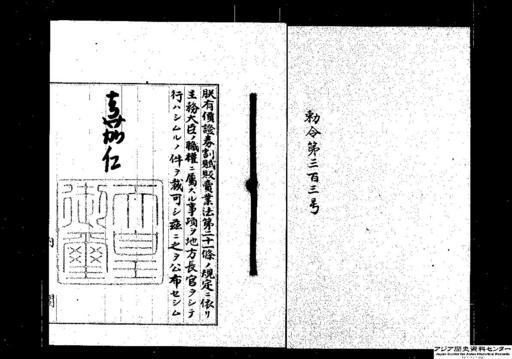 勅令第三百三号
朕有價證券割賦販賣業法第二十一條ノ規定ニ依リ
主務大臣ノ職權ニ屬スル事項ヲ地方長官ヲシテ
行ハシムルノ件ヲ裁可シ茲ニ之ヲ公布セシム
嘉仁
天皇御璽
内
閣
アジア歴史資料センター
Japan Center for Asian Historical Records